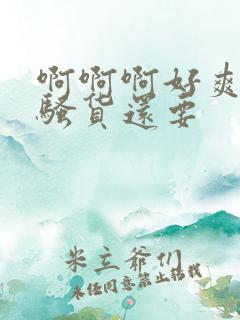 啊啊啊好爽
骚货还要
米立爷们
未经同意禁止转载